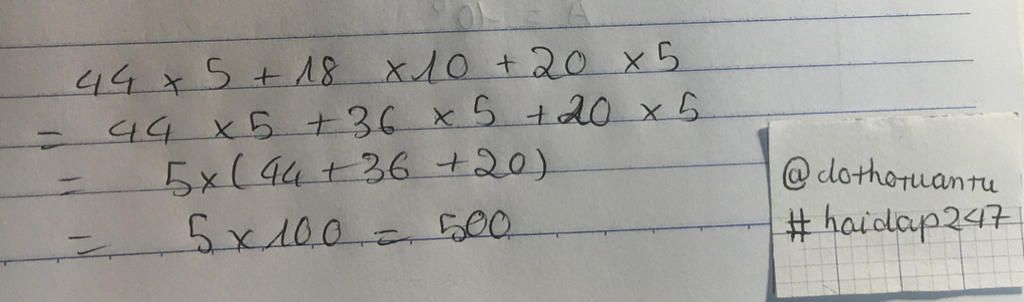 44 x 5 + 18 x 10 + 20 x 5
= 44 x 5 + 36 x 5 + 20 x 5
= 5 x (44 + 36 + 20)
= 5 x 100 = 500
@dothotuantu
# haidap247